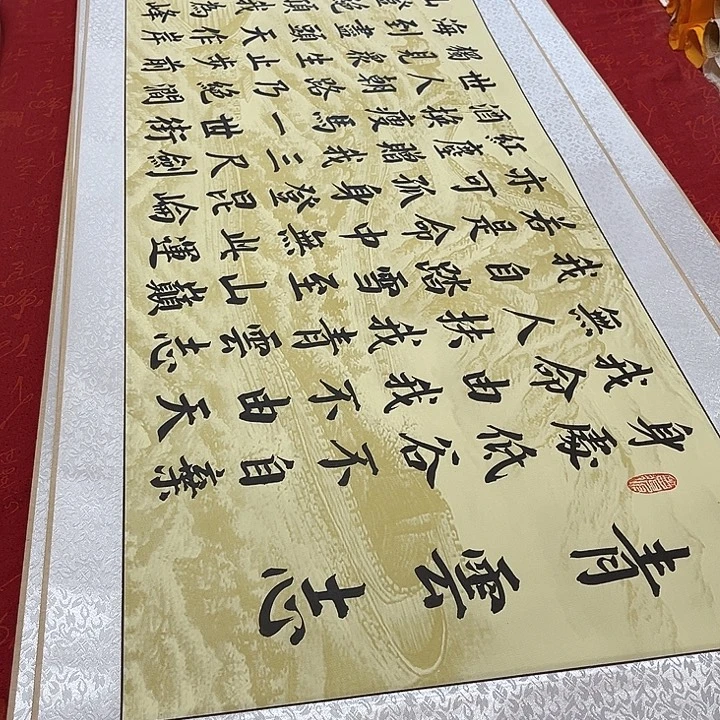 青雲志
身處低谷不自棄
我命由我不由天
無人扶我青雲志
我自踏雪至山巔
若是命中無此運
亦可孤身登昆崙
紅塵贈我三尺劍
酒換瘦馬一世街
世人朝路乃絕間
獨見衆生止步前
海到盡頭天作岸
山登絕頂我為峰